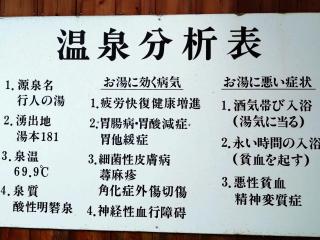 温泉分析表
1.源泉名
行人の湯
2.湧出地
湯本181
3.泉温
69.9℃
4.泉質
酸性明礬泉
お湯に効く病気
1.疲労快復健康増進
2.胃腸病・胃酸減症・
胃他緩症
3.細菌性皮膚病
蕁麻疹
角化症外傷切傷
4.神経性血行障碍
お湯に悪い症状
1.酒気帯び入浴
(湯気に当る)
2.永い時間の入浴
(貧血を起す)
3.悪性貧血
精神変質症